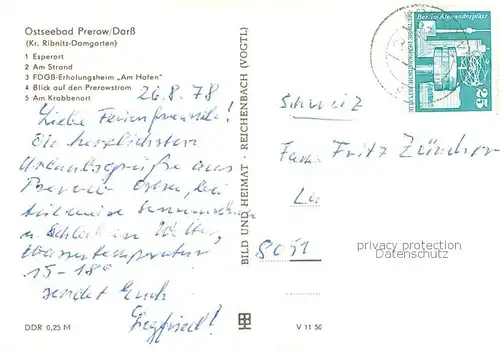 Ostseebad Prerow/Darß
(Kr. Ribnitz-Damgarten)
1 Esperort
2 Am Strand
3 FDGB-Erholungsheim „Am Hafen"
4 Blick auf den Prerowstrom
5 Am Krabbenort
26.8.78
Liebe Ferienfreunde!
Die herzlichsten
Urlaubsgrüße aus
Prerow Ostsee, bei
teilweise
u. schlechtem Wetter,
Wassertemperatur
15-18°
sendet Euch
Siegfried!
DDR 0,25 M
BILD UND HEIMAT · REICHENBACH (VOGTL)
V 11 50
Berlin-Alexanderplatz
DEUTSCHE DEMOKRATISCHE REPUBLIK
25
Schweiz
Fam. Fritz Zürcher
8051
privacy protection
Datenschutz